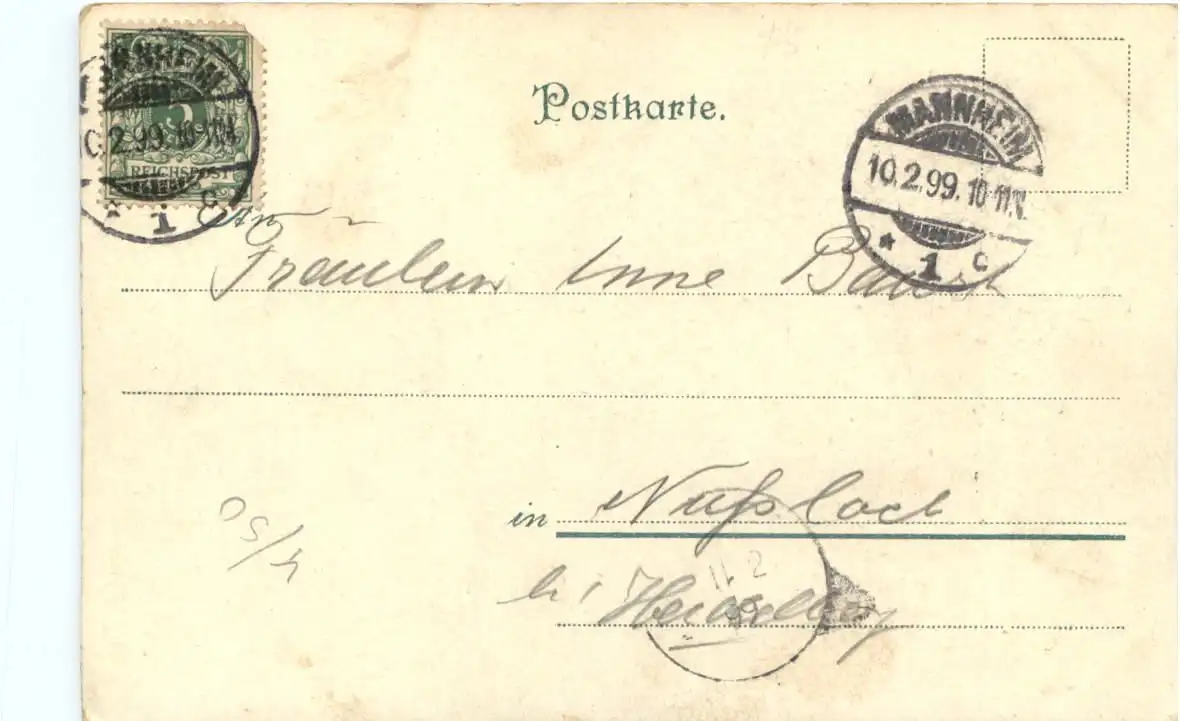 MANNHEIM
5
10.2.99. 10-11V.
REICHSPOST
* 1 c
Postkarte.
MANNHEIM
10.2.99. 10-11V.
* 1 c
An
Fräulein Anne
in Nußloch
bei Heidelberg
11 2